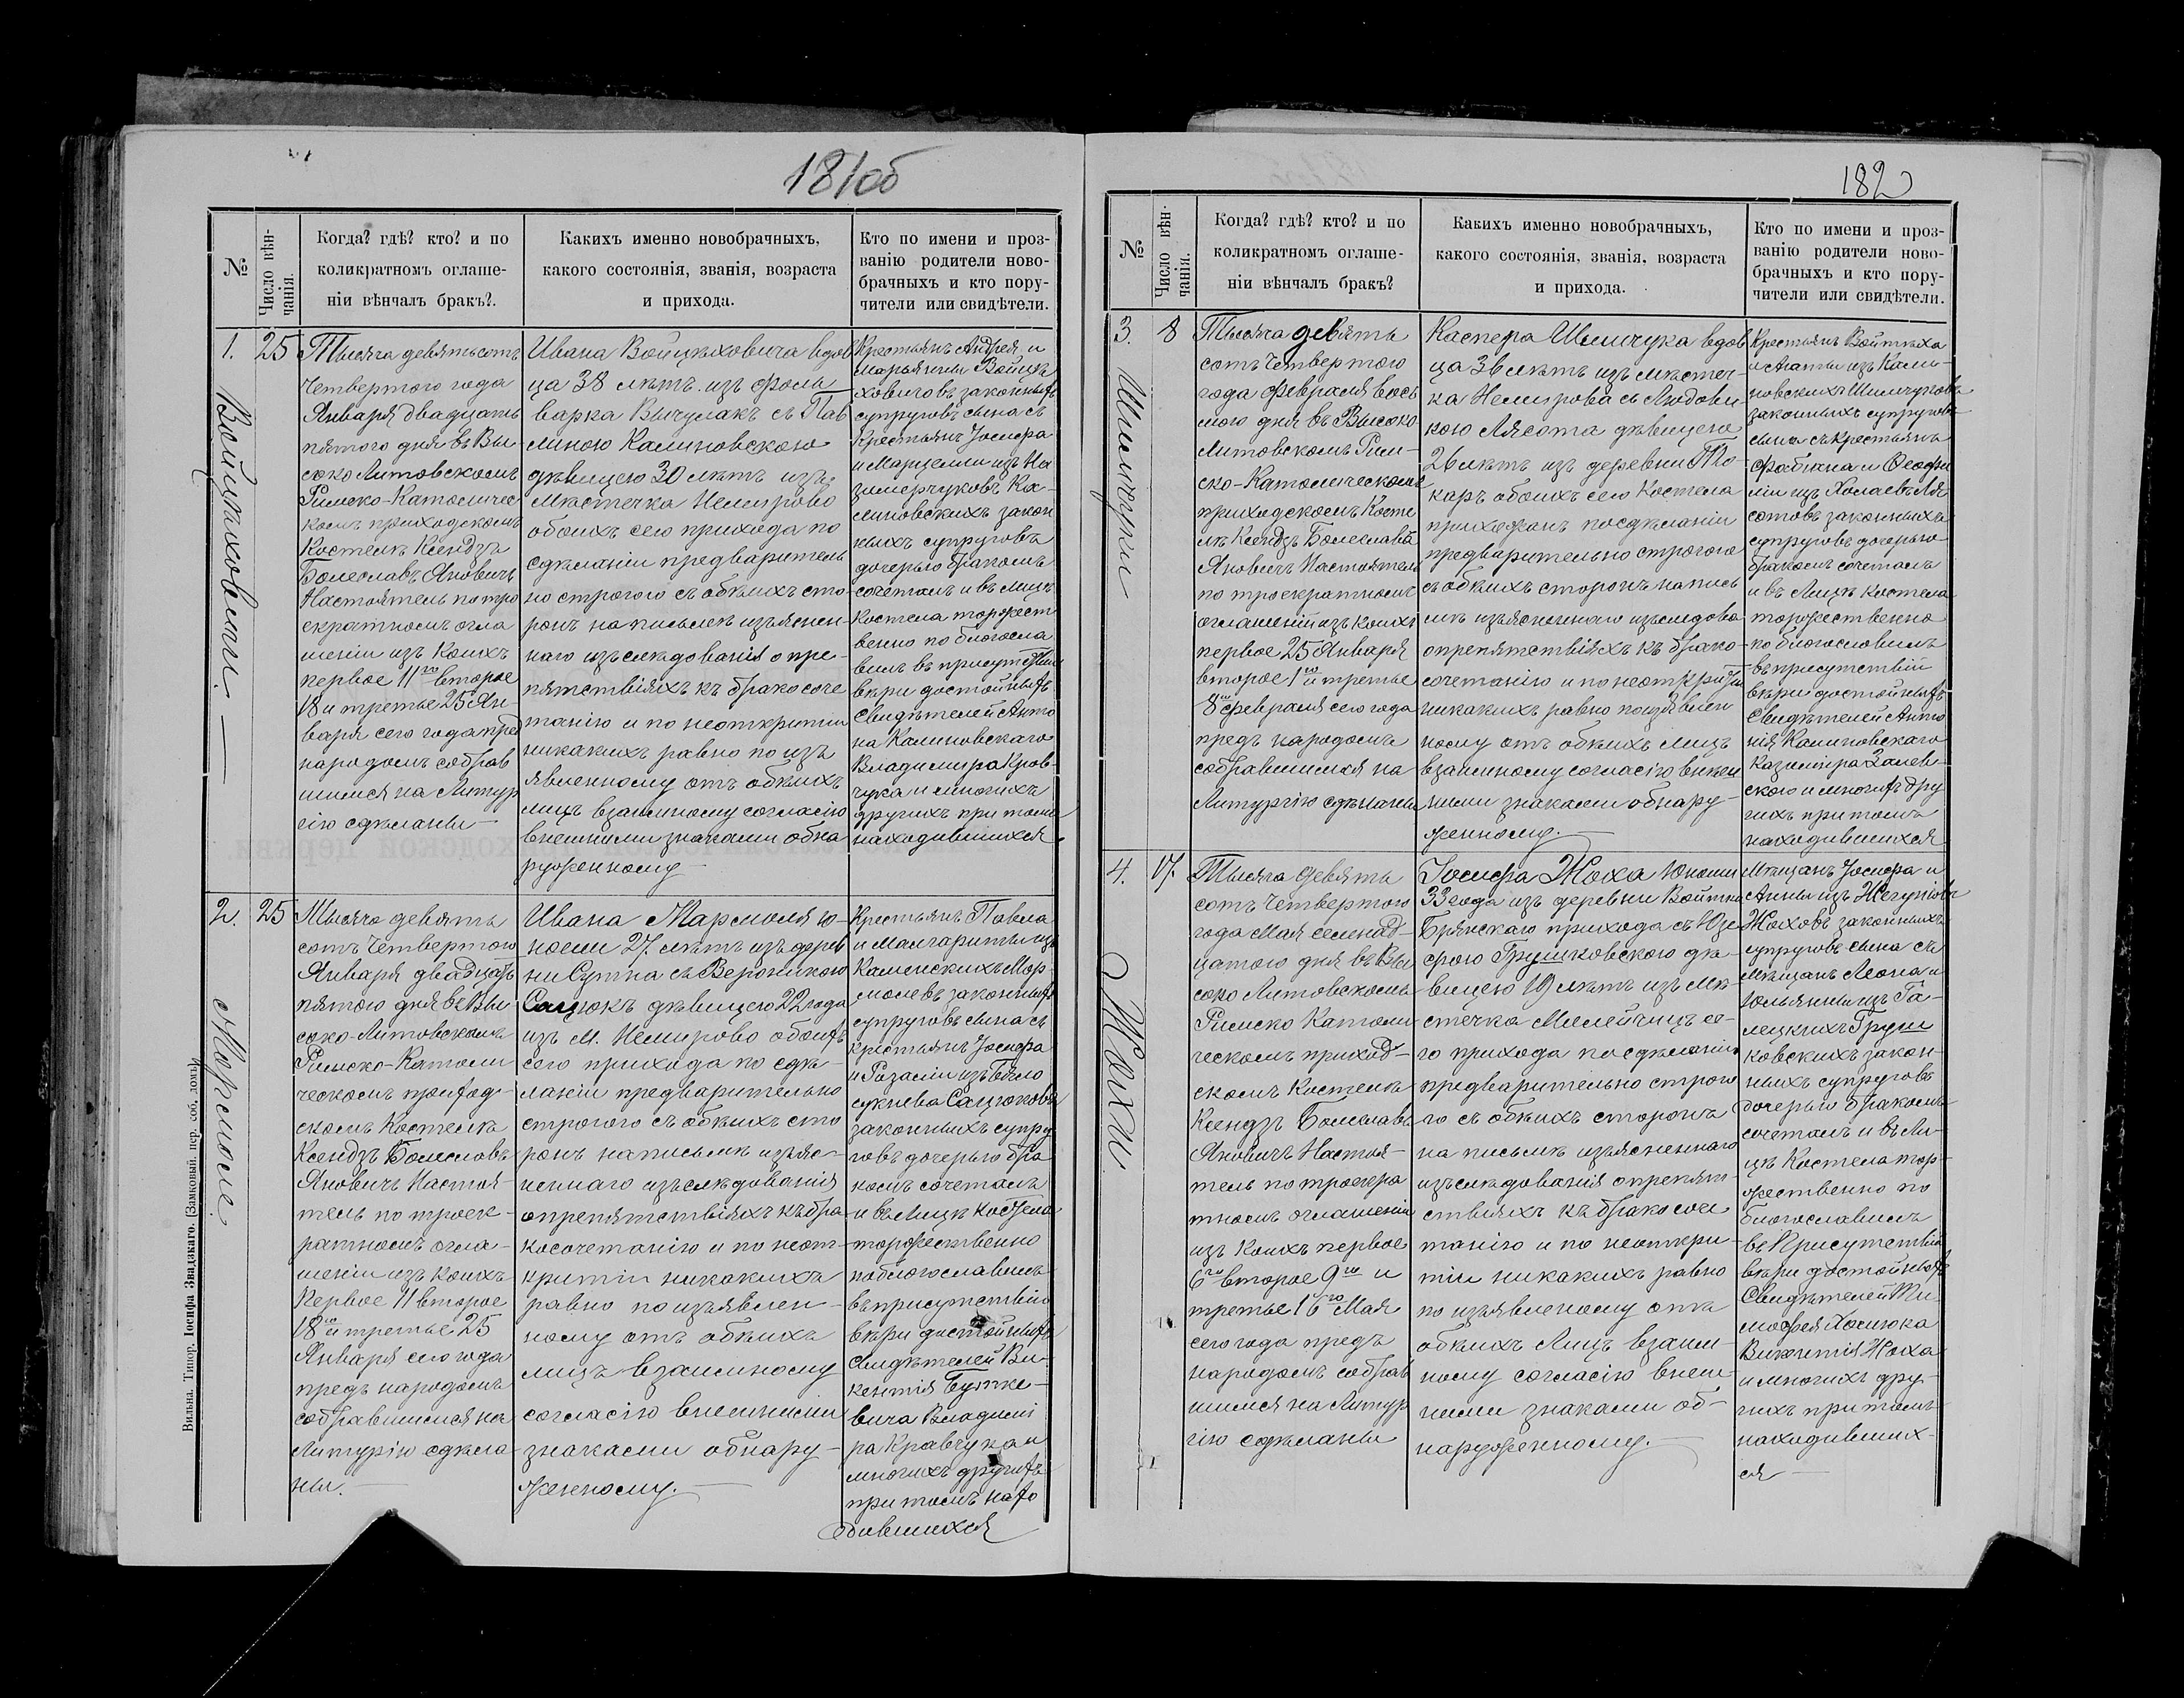 181об
№
Число вѣн-
чанія.
Когда? гдѣ? кто? и по
коликратномъ оглаше-
ніи вѣнчалъ бракъ?.
Какихъ именно новобрачныхъ,
какого состоянія, званія, возраста
и прихода.
Кто по имени и проз-
ванію родители ново-
брачныхъ и кто пору-
чители или свидѣтели.
1.
Войцѣховичи. —
25
Тысяча девятьсотъ
Четвертого года
Января двадцать
пятого дня въ Вы
соко Литовскомъ
Римско-Католичес
комъ приходскомъ
Костелѣ Ксендзъ
Болеславъ Яновичъ
Настоятель по тро
екратномъ огла
шеніи изъ коихъ
первое 11го второе
18 и третье 25 Ян-
варя сего года пред
народомъ собрав
шимся на Литур
гію сдѣланы —
Ивана Войцѣховича вдов
ца 38 лѣтъ изъ Фоль
варка Вычулакъ съ Пав
линою Калиновскою
дѣвицею 30 лѣтъ изъ
Мѣстечка Немирово
обоихъ сего прихода по
сдѣланіи предваритель
но строгого съ обѣихъ сто-
ронъ на письмѣ изъяснен-
наго изъслѣдованія о пре-
пятствіяхъ къ бракосоче
танію и по неоткрытіи
никакихъ равно по изъ
явленному отъ обѣихъ
лицъ взаимному согласію
внешними знаками обна
руженному —
Крестьянъ Андрея и
Марьянны Войцѣ
ховичовъ законныхъ
супруговъ сына съ
Крестьянъ Іосифа
и Марцелли изъ На
зимерчуковъ Ка-
линовскихъ закон
ныхъ супруговъ
дочерью бракомъ
сочеталъ и въ лицѣ
Костела торжест
венно по благосла
вилъ въ присутствіи
вѣри достойныхъ
Свидѣтелей Анто
на Калиновскаго
Владимира Кров-
чука и многихъ
другихъ при томъ
находившихся
2.
Мормоли.
25
Тысяча девять
сотъ Четвертого
Января двадцать
пятого дня въ Вы
соко-Литовскомъ
Римско-Католи
ческомъ приход-
скомъ Костелѣ
Ксендзъ Болеславъ
Яновичъ Настоя-
тель по троек-
ратномъ огла-
шеніи изъ коихъ
Первое 11 второе
18го и третье 25
Января сего года
предъ народомъ
собравшимся на
Литургію сдѣла
ны. —
Ивана Мармоля ю-
ноши 27. лѣтъ изъ дерев
ни Сутна съ Вероникою
Сацюкъ дѣвицею 22 года
изъ М. Немирово обоихъ
сего прихода по сдѣ-
ланіи предварительно
строгого съ обѣихъ сто
ронъ на письмѣ изъяс-
неннаго изъслѣдованія
о препятствіяхъ къ бра
косочетанію и по неот-
крытіи никакихъ
равно по изъявлен-
ному отъ обѣихъ
лицъ взаимному
согласію внешними
знаками обнару-
женному. —
Крестьянъ Павла
и Малгариты изъ
Каменскихъ Мор-
молевъ законныхъ
супруговъ сына съ
крестьянъ Іосифа
и Розаліи изъ Бѣло
сукнева Сацюковъ
законныхъ супру
говъ дочерью бра
комъ сочеталъ
и въ Лицѣ Костела
торжественно
поблагославилъ
въ присутствіи
вѣри достойныхъ
Свидѣтелей Ви-
кентія Бутке-
вича Владими
ра Кравчука и
многихъ другихъ
при томъ нахо
дившихся
Вильна. Типор. Іосифа Звадзкаго. (Замковый. пер. соб. домъ)
182
№
Число вѣн-
чанія.
Когда? гдѣ? кто? и по
коликратномъ оглаше-
ніи вѣнчалъ бракъ?
Какихъ именно новобрачныхъ,
какого состоянія, званія, возраста
и прихода.
Кто по имени и проз-
ванію родители ново-
брачныхъ и кто пору-
чители или свидѣтели.
3.
Шимчуки
8
Тысяча девять
сотъ Четвертого
года февраля вось
мого дня въ Высоко
Литовскомъ Рим-
ско-Католическомъ
приходскомъ Косте
лѣ Ксендзъ Болеславъ
Яновичъ Настоятель
по троекратномъ
оглашеніи изъ коихъ
первое 25 Января
второе 1го и третье
8го февраля сего года
предъ народомъ
собравшимся на
Литургію сдѣланы
Каспера Шимчука вдов
ца 36 лѣтъ изъ мѣстеч-
ка Немирова съ Людови-
кою Лясота дѣвицею
26 лѣтъ изъ деревни То-
каръ обоихъ сего Костела
прихожан по сдѣланіи
предварительно строгого
съ обѣихъ сторонъ на пись
мѣ изъясненнаго изъслѣдова
о препятствіяхъ къ брако-
сочетанію и по неоткрытіи
никакихъ равно по изъявлен
ному отъ обѣихъ лицъ
взаимному согласію внеш
ними знаками обнару-
женному. —
Крестьянъ Войтѣха
и Агаты изъ Кали-
новскихъ Шимчуковъ
законныхъ супруговъ
сына съ Крестьянъ
Фабіана и Ѳеофи
ліи изъ Холаевъ Ля
сотовъ законныхъ
супруговъ дочерью
бракомъ сочеталъ
и въ Лицѣ костела
торжественно
по благословилъ
въ присутствіи
вѣри достойныхъ
Свидѣтелей Анто
нія Калиновскаго
Казимира Залев-
скою и многихъ дру
гихъ при томъ
находившихся
4.
Жохи
17.
Тысяча девять
сотъ Четвертого
года Мая семнад-
цатого дня въ Вы
соко Литовскомъ
Римско Католи-
ческомъ приход-
скомъ Костелѣ
Ксендзъ Болеславъ
Яновичъ Настоя-
тель по троекра
тномъ оглашеніи
изъ коихъ первое
6го второе 9го и
третье 16го Мая
сего года предъ
народомъ собрав
шимся на Литур
гію сдѣланы
Іосифа Жоха юноши
33 года изъ деревни Войтки
Брянскаго прихода съ Юзе
фою Грушковского дѣ-
вицею 19 лѣтъ изъ мѣ-
стечка Милейчицъ се-
го прихода по сдѣланіи
предварительно строго
го съ обѣихъ сторонъ
на письмѣ изъясненнаго
изъслѣдованія о препят-
ствіяхъ къ бракосоче
танію и по неоткры-
тіи никакихъ равно
по изъявленому отъ
обѣихъ Лицъ взаим-
ному согласію внеш
ними знаками об-
наруженному. —
Мѣщанъ Іосифа и
Анны изъ
Жоховъ законныхъ
супруговъ сына съ
Мѣщанъ Леона и
Юльянны изъ Га-
лецкихъ Груш
ковскихъ закон-
ныхъ супруговъ
дочерью бракомъ
сочеталъ и въ Ли-
цѣ Костела тор-
жественно по
благославилъ
въ Присутствіи
вѣри достойныхъ
Свидѣтелей Ти-
мофея Хасюка
Викентія Жоха
и многихъ дру-
гихъ при томъ
находивших-
ся —